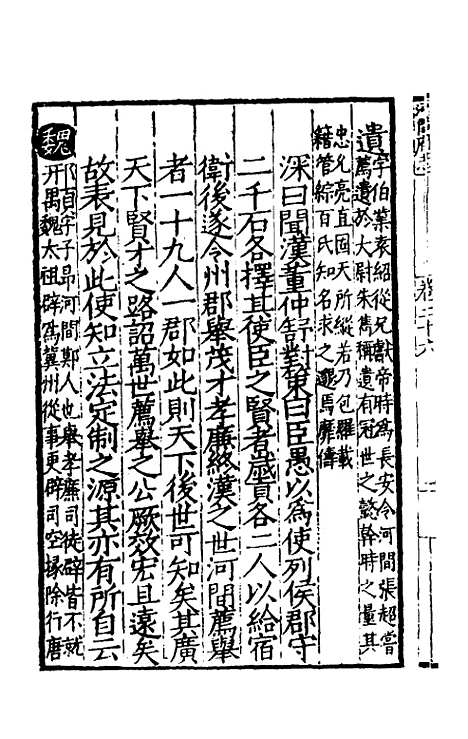 遺字伯業袁紹從兄獻帝時爲長安令河間張超嘗
薦遺於大尉朱雋稱遺有冠世之懿幹時之量其
忠允亮直固天所縱若乃包羅載
籍管綜百氏知名求之今日邈焉靡儔
深曰聞漢董仲舒對策曰臣愚以為使列侯郡守
二千石各擇其使臣之賢者歲貢各二人以給宿
衛後遂令州郡舉茂才孝廉終漢之世河間薦舉
者一十九人一郡如此則天下後世可知矣其廣
天下賢才之路詔萬世薦舉之公厥效宏且遠矣
故表見於此使知立法定制之源其亦有所自云
魏
邢顒字子昂河間鄚人也舉孝廉司徒辟皆不就
魏太祖辟爲冀州從事更辟司空掾除行唐
卷二十六